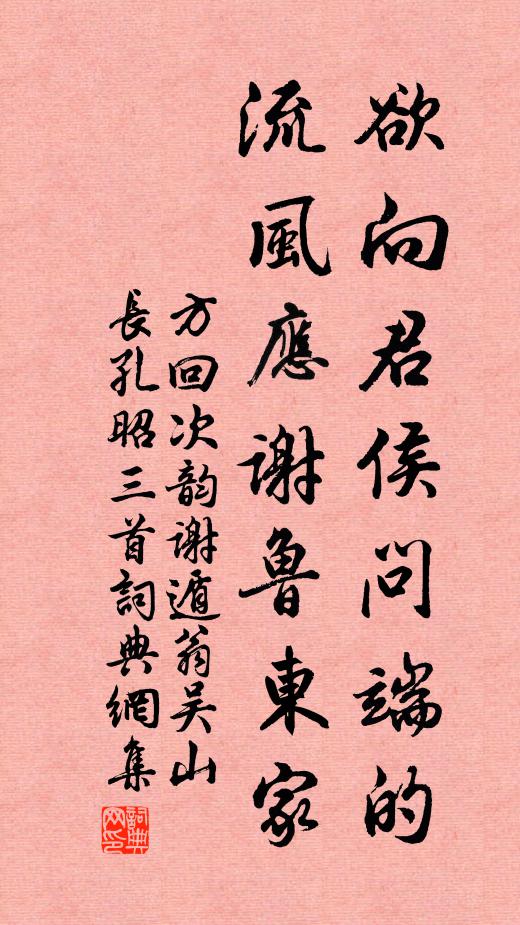 欲向君侯問端的
流風應謝魯東家
方回次韵謝遁翁吴山
長孔昭三首詞典網集
詞典网印